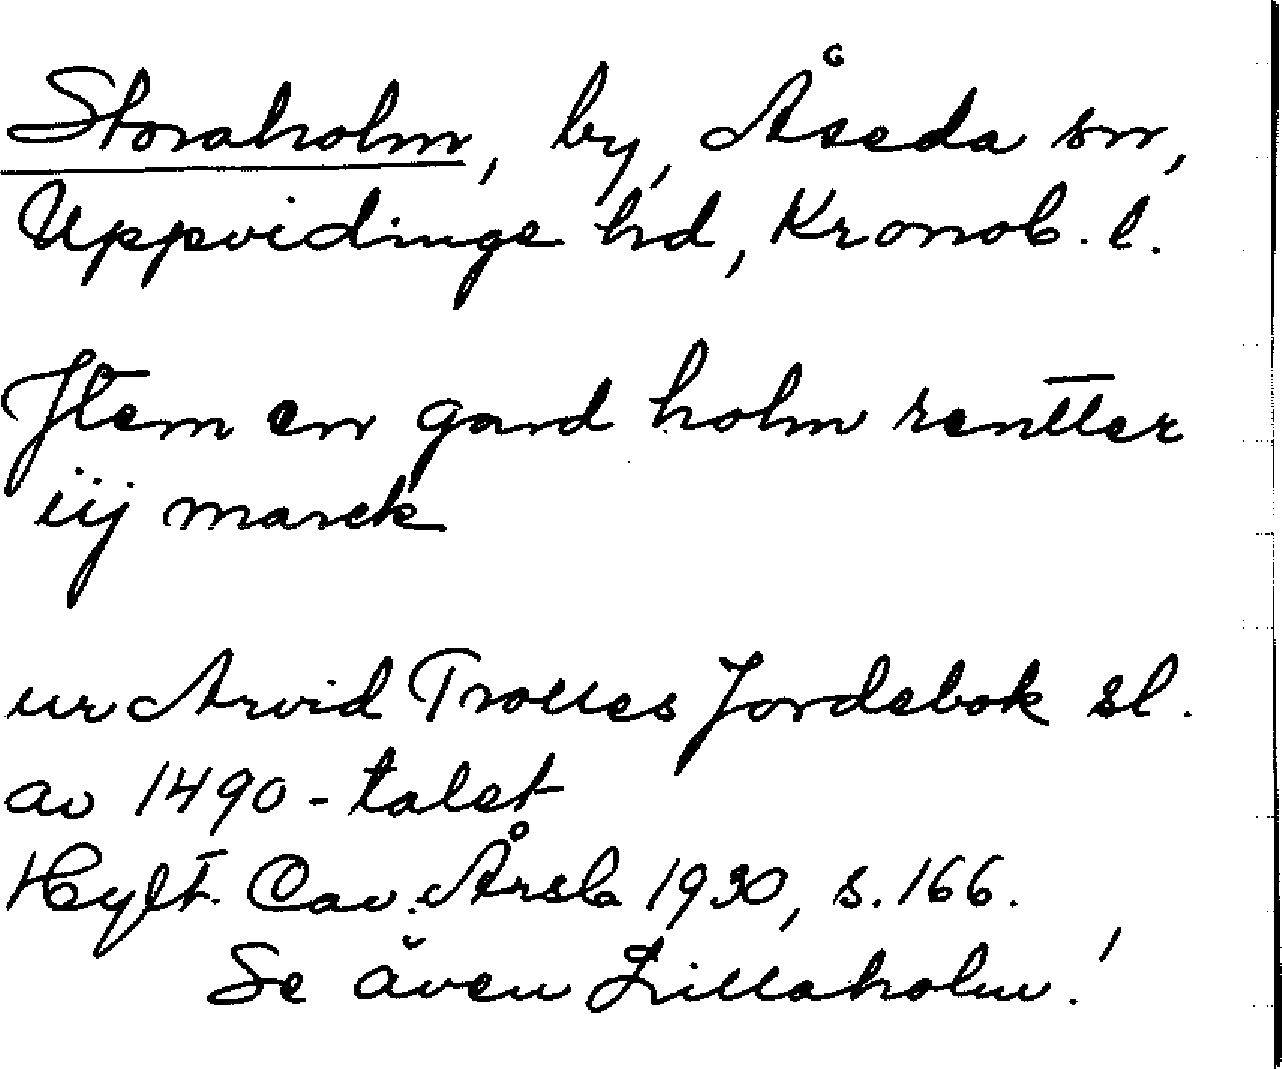 Storaholm, by, Åseda sn,
Uppvidinge hd, Kronob. l.
Jtem en gard holm rentter
iij marck
ur Arvid Trolles Jordebok sl.
av 1490-talet
Hylt. Cav. Årsb 1930, s. 166.
Se även Lillaholm!